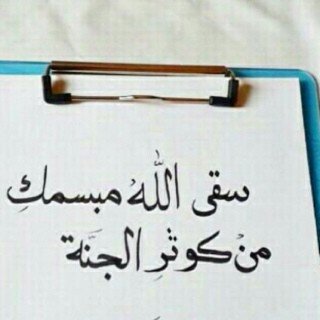 سقى اللهُ مبسمكِ
منْ كوثرِ الجنَّة